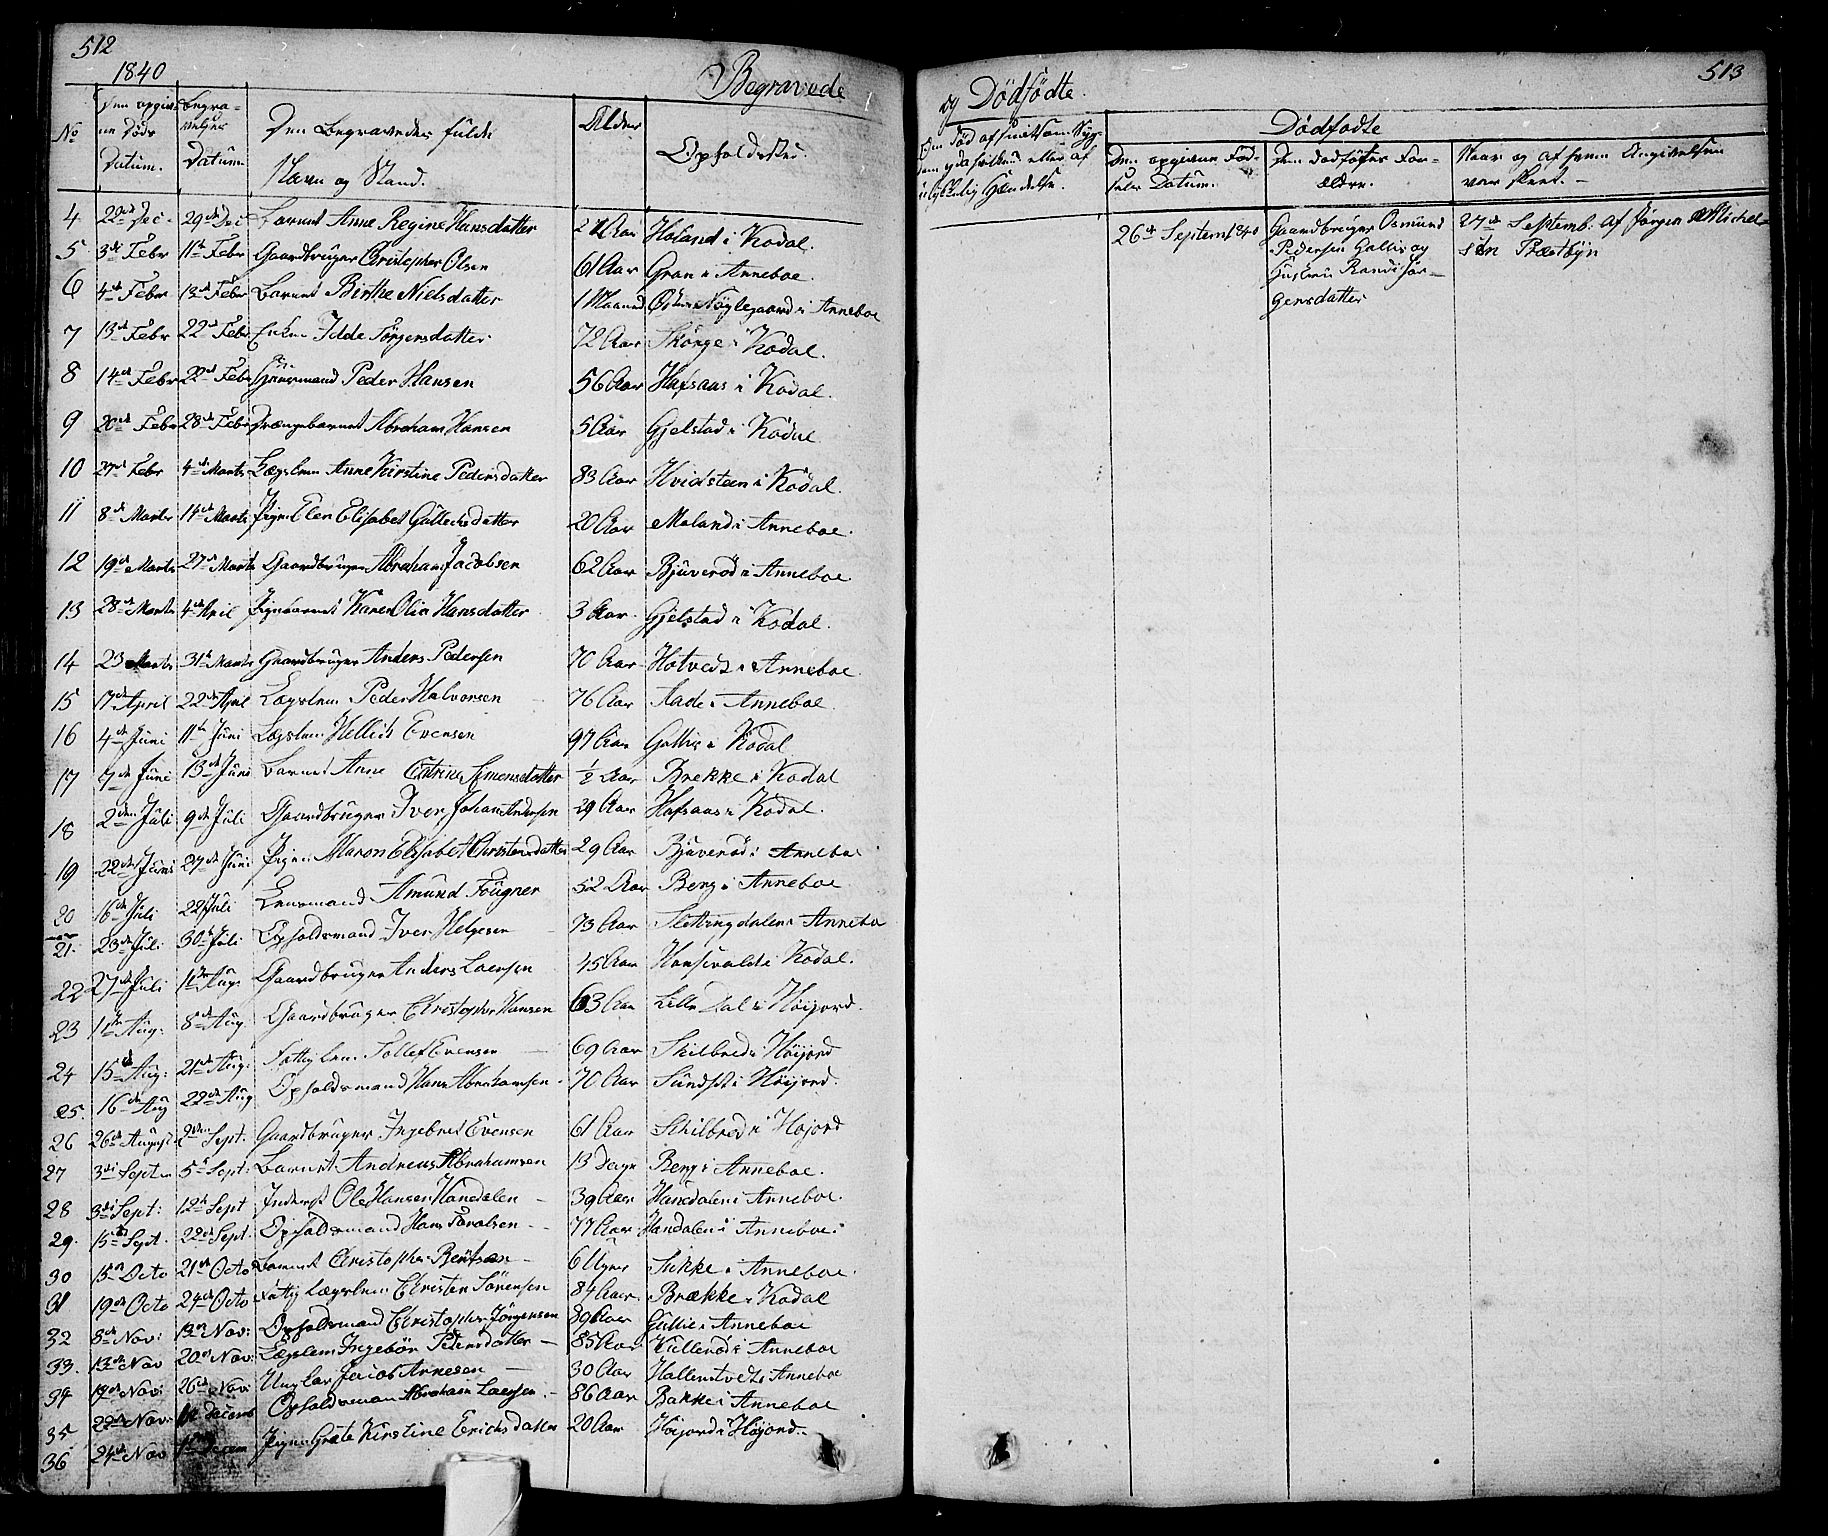 512
1840
Begravede
No
Den opgiv-
ne Døds
Datum.
Begra-
velses
Datum
Den Begravedes fulde
Navn og Stand.
Alder
Opholdsted.
4 22de Dec. 29de Dec Barnet Anne Regine Hansdatter Aar Holand i Kodal.
5 3de Febr 11te Febr Gaardbruger Christopher Olsen 61 Aar Gran i Anneboe.
6 4de Febr 13de Febr Barnet Birthe Nielsdatter 1 Maaned Østre Nøglegaard i Anneboe
7 13de Febr 22de Febr Enken Idde Jørgensdatter 72 Aar Skorge i Kodal.
8 14de Febr 22de Febr Huusmand Peder Hansen 56 Aar Hafsaas i Kodal.
9 20de Febr 28de Febr Drængebarnet Abraham Hansen 5 Aar Gjelstad i Kodal
10 27de Febr 4de Marts Lægslem Anne Kirstine Pedersdatter 83 Aar Hvidsteen i Kodal.
11 8de Marts 14de Marts Pige Elen Elisabet Gulleichsdatter 20 Aar Moland i Anneboe.
12 19de Marts 27de Marts Gaardbruger Abraham Jacobsen 62 Aar Bjuverød i Anneboe
13 28de Marts 4de April Pigebarnet Karen Olia Hansdatter 3 Aar. Gjelstad i Kodal.
14 23 Marts 31te Marts Gaardbruger Anders Pedersen 70 Aar Hotvedt i Anneboe.
15 17de April 22de April Lægslem Peder Halvorsen 76 Aar Aade i Anneboe.
16 4de Juni 11te Juni Lægslem Hellich Evensen 97 Aar Gallis i Kodal
17 7de Juni 13de Juni Barnet Anne Catrine Simensdatter ½ Aar Brekke i Kodal
18 2den Juli 9de Juli Gaardbruger Iver Johan Andersen 29 Aar Hafsaas i Kodal.
19 22de Juni 27de Juni Pige Maren Elisabet Christensdatter 29 Aar Bjuverød i Anneboe
20 16de Juli 22 Juli Lensmand Amund Fougner 52 Aar Berg i Anneboe
21. 23de Juli 30te Juli Opholdsmand Iver Helgesen 73 Aar Slettingdalen i Anneboe
22 27de Juli 1ste Aug. Gaardbruger Anders Larsen 45 Aar Hansivald i Kodal.
23 1ste Aug: 8de Aug. Gaardbruger Christopher Hansen 63 Aar Lille Dal i Høijord.
24 15de Aug: 21de Aug: Fattiglem Tollef Evensen 69 Aar Skilbred i Høijord
25. 16de Aug 22de Aug Opholdsmand Hans Abrahamsen 70 Aar Sundset i Høijord.
26 26de August 2den Sept. Gaardbruger Ingebret Evensen 61 Aar Schilbred i Høijord
27 3die Sept. 5te Sept: Barnet Andreas Abrahamsen 13 Dage Berg i Anneboe.
28 3die Sept: 12te Sept Inderst Ole Hansen Hanedalen 39 Aar Hanedalen i Anneboe.
29. 15de Sept. 22de Sept. Opholdsmand Hans Taralsen 77 Aar Handalen i Anneboe
30 15de Octo 21de Octo Barnet Christopher Bentsen 6 Uger Sukke i Anneboe.
31 19de Octo 24de Octo Fattig Lægslem Christen Sørensen 84 Aar. Brække i Kodal
32 8de Nov: 13de Nov: Opholdsmand Christopher Jørgensen 89 Aar Gallie i Anneboe
33. 13de Nov 20de Nov: Lægslem Ingebor Pedersdatter 85 Aar Kullerød i Anneboe
34 17de Nov: 26de Nov: Ungkar Jacob Arnesen 30 Aar Hallenstvedt i Anneboe
35 22de Nov. Decemb Opholdsmand Abraham Larsen 86 Aar Bakke i Anneboe
36 24de Nov 1ste Decem Pige Grete Kirstine Erichsdatter 20 Aar Høijord i Høijord.
513
og Dødfødte.
Om Død af smitsom Syg-
dom paafølgend eller af
ulykkelig Hændelse.
Dødfødte
Den opgivne Fød-
sels Datum.
Den dødfødtes For-
ældre.
Naar og af hvem Angivelsen
var skeet.
26de Septem 1840
Gaardbruger Osmund
Pedersen Gallis og
Hustrue Randi Jør-
gensdatter
27de Septemb. af Jørgen Michel-
sen Præstbyn